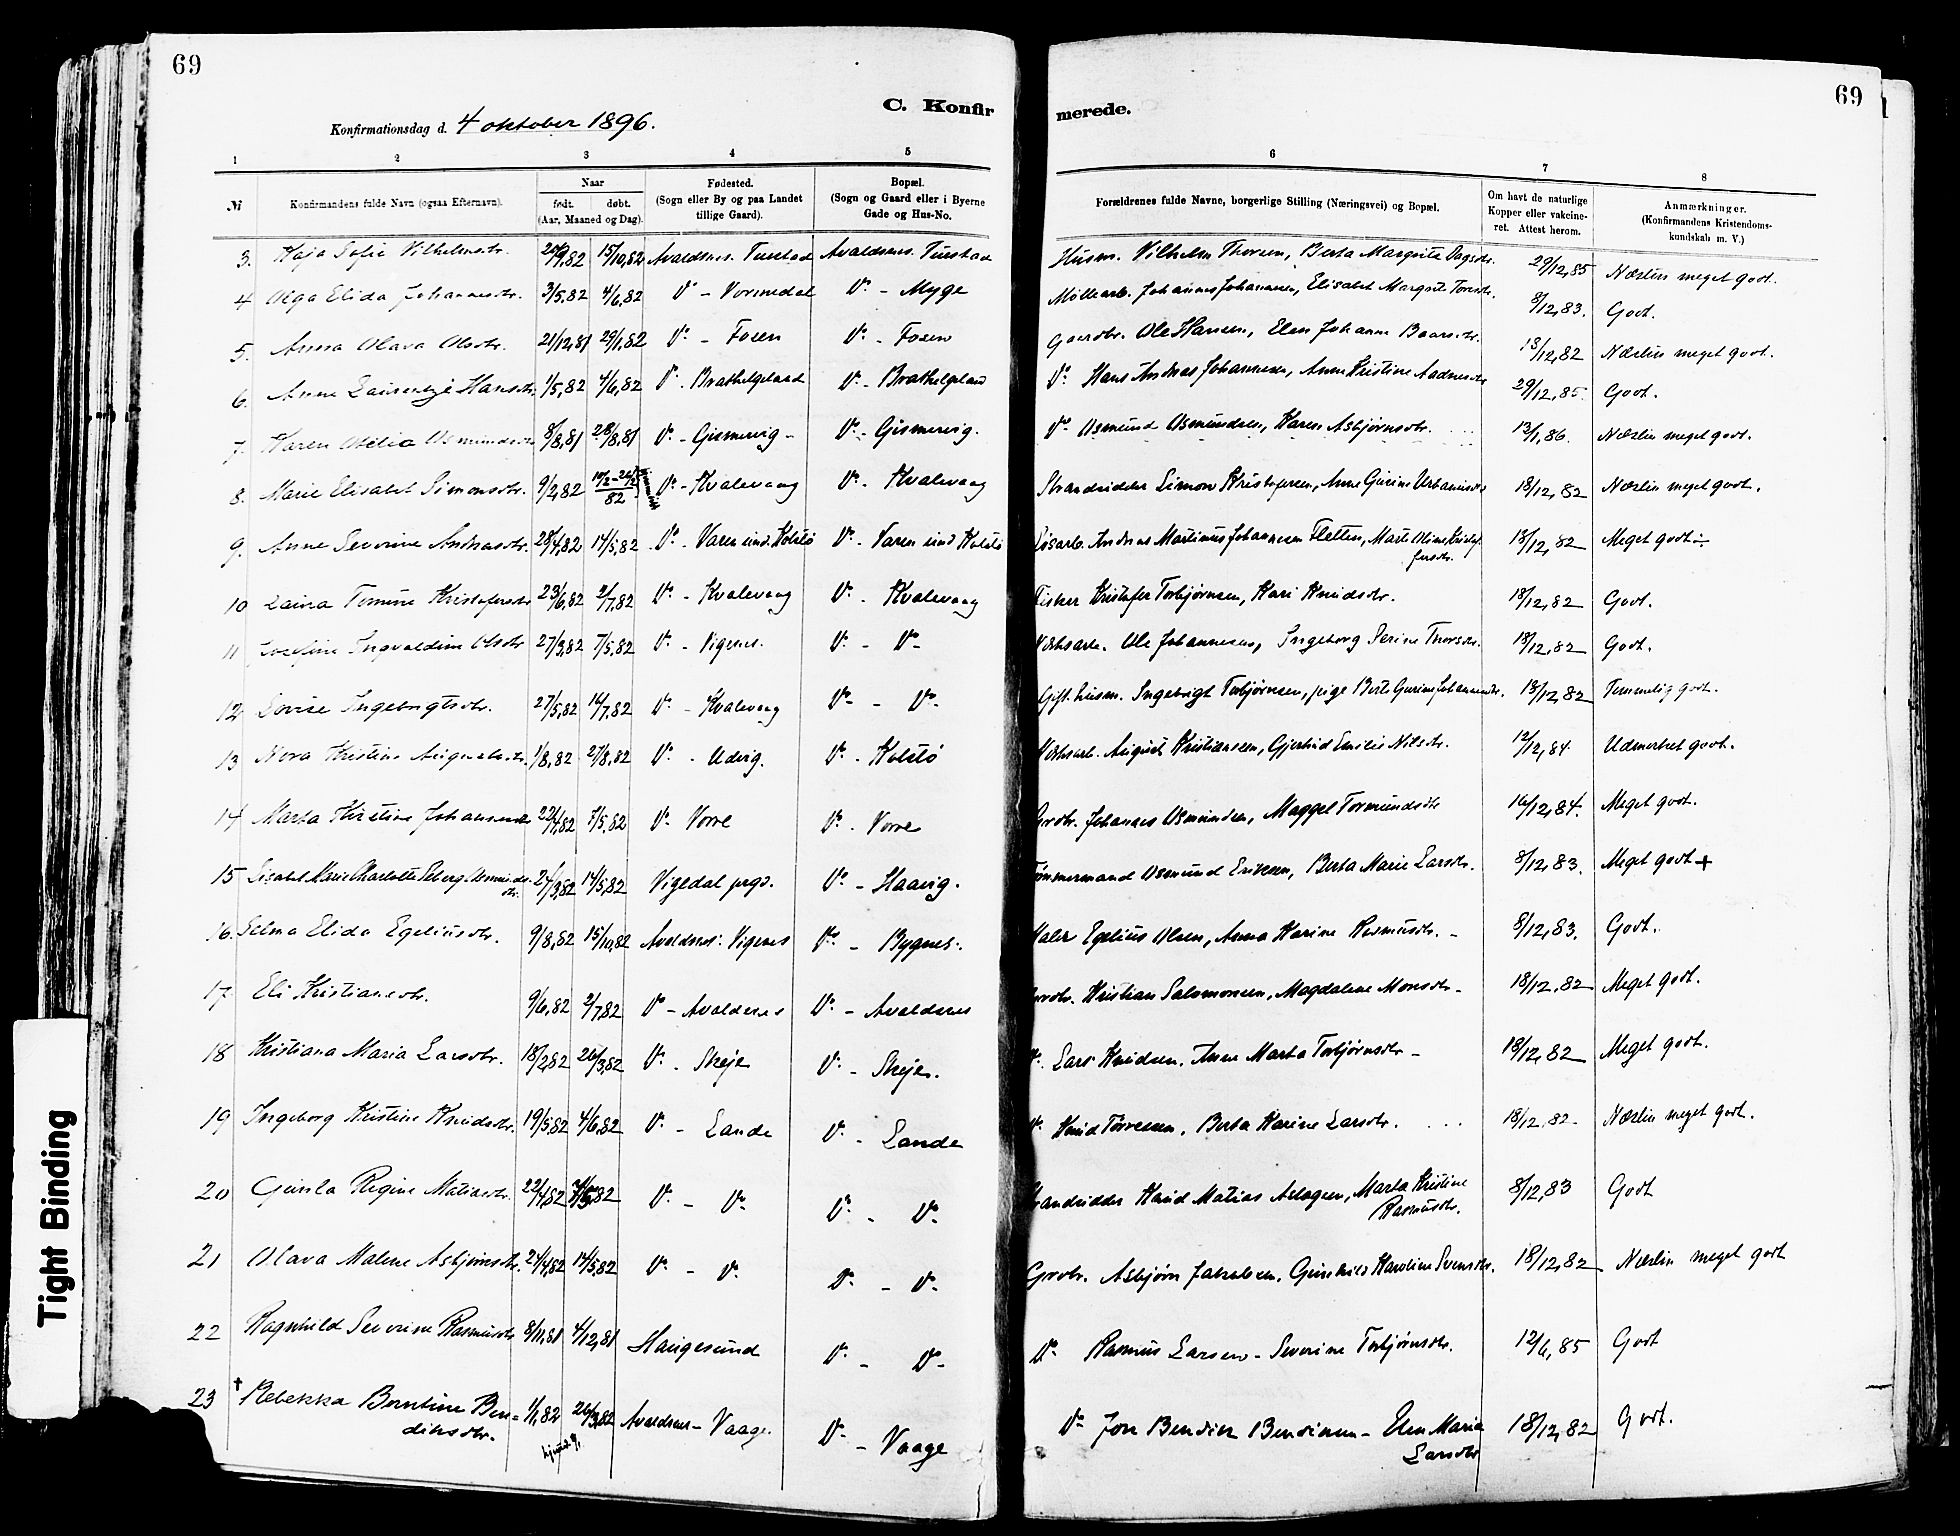 69
69
C. Konfir
merede.
Konfirmationsdag d. 4 oktober 1896.
1 2 3 4 5 6 7 8
№
Konfirmandens fulde Navn (ogsaa Efternavn).
Naar
født. døbt.
(Aar, Maaned og Dag).
Fødested.
(Sogn eller By og paa Landet
tillige Gaard).
Bopæl.
(Sogn og Gaard eller i Byerne
Gade og Hus-No.
Forældrenes fulde Navne, borgerlige Stilling (Næringsvei) og Bopæl.
Om havt de naturlige
Kopper eller vakcine-
ret. Attest herom.
Anmærkninger.
(Konfirmandens Kristendoms-
kundskab m. V.)
3. Kaja Sofie Vilhelmsdtr. 15/10,82 Avaldsnes. Avaldsnes. Husm. Vilhelm Thorsen, Berta Margrita 29/12,85 Næsten meget godt.
4 Olga Elida Johannesdtr. 3/5,82 4/6,82 Do - Vormedal Do - Myge Møllearb. Johannes Johannesen, Elisabet Margrete 8/12,83. Godt.
5. Anna Olava Olsdtr. 21/12,81 29/1,82 Do - Fosen Do - Fosen Gaardbr. Ole Hansen, Elen Johanne 13/12,82 Næsten meget godt.
6. Anne Hansdtr. 1/5,82 4/6,82 Do - Brathelgeland Do - Brathelgeland Do Hans Andreas Johannesen, Anne Kristine Aadnesdtr 29/12,85. Godt.
7. Karen Otelia Osmundsdtr 8/8,81 28/8,81 Do - Gismervig - Do - Gismervig. Do Osmund Osmundsen, Karen Asbjørnsdtr. 13/1,86. Næsten meget godt.
8. Marie Elisabet Simonsdtr. 9/2,82 82 Do - Kvalevaag Do - Kvalevaag Strandsidder Simon Kristofersen, Anne Gurine 18/12,82 Næsten meget godt.
9. Anne Severine Andreasdtr. 28/4,82 14/5,82 Do - Varen und. Kolstø Do - Varen und Kolstø Andreas Martinus Johannesen Fletten, Marte Oline 18/12,82 Meget godt ÷
10 Laina Tomine Kristofersdtr 23/6,82 2/7,82 Do - Kvalevaag Do - Kvalevaag Fisker Kristofer Torbjørnsen, Kari Knudsdtr. 18/12,82 Godt.
11 Josefine Ingvaldine Olsdtr 27/3,82 7/5,82 Do - Vigenes. Do - Do Ole Johannesen, Ingeborg Serine 18/12,82 Godt.
12 Lovise Ingebrigtsdtr. 27/5,82 16/7,82 Do - Kvalevaag Do - Do Gift husm. Ingebrigt Torbjørnsen, pige Berte Gurine Johannesdtr. 18/12,82 Temmelig godt.
13 Nora Kristine Augustsdtr. 1/8,82 27/8,82 Do - Udvig. Do - Kolstø August Kristiansen, Gjertrud Emilie Nilsdtr. 12/12,84. Udmerket godt.
14 Marta Kirstine Johannesdtr 22/4,82 7/5,82 Do Vorre Do - Vorre Grdbr. Johannes Osmundsen, Maggel Tormundsdtr 16/12,84. Meget godt.
15 Lisabet Marie Charlotte Osmundsdtr. 24/3,82 14/5,82 Vigedal prgd. Do - Haavig. Tømmermand Osmund Eriksen, Berta Marie Larsdtr. 8/12,83. Meget godt +
16. Selma Elida Egeliusdtr. 9/8,82 15/10,82 Avaldsnes: Vigenes Do - Bygnes. Maler Egelius Olsen, Anna Karine Rasmusdtr. - 8/12,83. Godt.
17 Eli Kristiansdtr. 9/6,82 2/7,82 Do - Avaldsnes Do - Avaldsnes Grdbr. Kristian Salomonsen, Magdalene Monsdtr - 18/12,82 Meget godt.
18 Kristiana Maria Larsdtr. 18/2,82 26/3,82 Do - Skeje Do - Skeje. Do. Lars Knudsen. Anne Marta Torbjørnsdtr - 18/12,82 Meget godt.
19 Ingeborg Kristine Knudsdtr. 19/5,82 4/6,82 Do - Lande Do - Lande Do. Knud Tørresen. Berta Karine Larsdtr. 18/12,82. Næsten meget godt.
20 Gunla Regine Matiasdtr. 22/4,82 7/5,82 Do - Do Do - Do. Strandsidder Knud Matias Aslagsen, Marta Kristine Rasmusdtr. 8/12,83 Godt
21 Olava Malene Asbjørnsdtr. 24/4,82 14/5,82 Do - Do. Do - Do. Grdbr. Asbjørn Jakobsen. Gunhild Karoline Svensdtr. 18/12,82 Næsten meget godt
22 Ragnhild Severine Rasmusdtr. 8/11,81 4/12,81 Haugesund Do - Do - Do Rasmus Larsen - Severine Torbjørnsdtr. 12/6,85 Godt
23 † Rebekka Berntine Ben=
diksdtr. 1/1,82 26/3,82 Avaldsnes - Vaage. Do - Vaage Do Jon Bendik Bendiksen - Elen Maria
Larsdtr 18/12,82 Godt.
Tight Binding